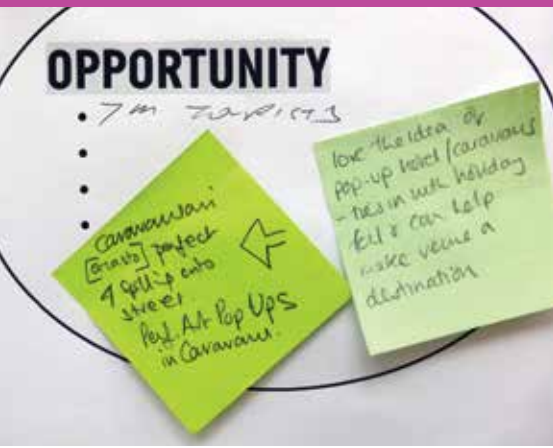 OPPORTUNITY
• 7m tourists
•
•
•
caravanserai
perfect
4 spilling onto
street
Perf. Art Pop Ups
in Caravans.
love the idea of
pop-up hotel/caravans
- ties in with holiday
feel & can help
make venue a
destination